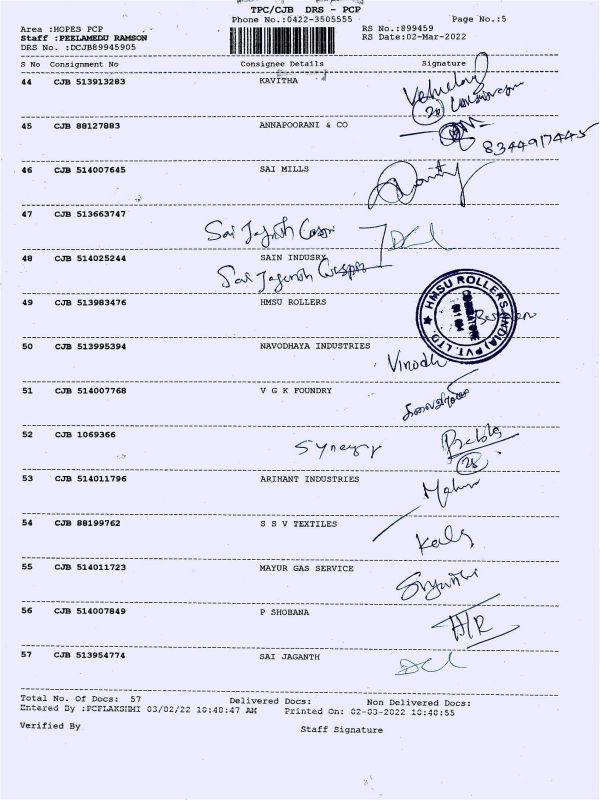 TPC/CJB DRS - PCP
Phone No.:0422-3505555 Page No.:5
Area :HOPES PCP RS No.:899459
Staff :PEELAMEDU RAMSON RS Date:02-Mar-2022
DRS No. :DCJB89945905
S No Consignment No Consignee Details Signature
44 CJB 513913283 KAVITHA
45 CJB 88127883 ANNAPOORANI & CO
8344917445
46 CJB 514007645 SAI MILLS
47 CJB 513663747
Sai
48 CJB 514025244 SAIN INDUSRY
Sai
49 CJB 513983476 HMSU ROLLERS
HMSU ROLLERS (INDIA) PVT. LTD
50 CJB 513995394 NAVODHAYA INDUSTRIES
Vinodh
51 CJB 514007768 V G K FOUNDRY
52 CJB 1069366
Synergy
28
53 CJB 514011796 ARIHANT INDUSTRIES
54 CJB 88199762 S S V TEXTILES
55 CJB 514011723 MAYUR GAS SERVICE
56 CJB 514007849 P SHOBANA
H/R
57 CJB 513954774 SAI JAGANTH
Total No. Of Docs: 57 Delivered Docs: Non Delivered Docs:
Entered By :PCPLAKSHMI 03/02/22 10:48:47 AM Printed On: 02-03-2022 10:48:55
Verified By Staff Signature